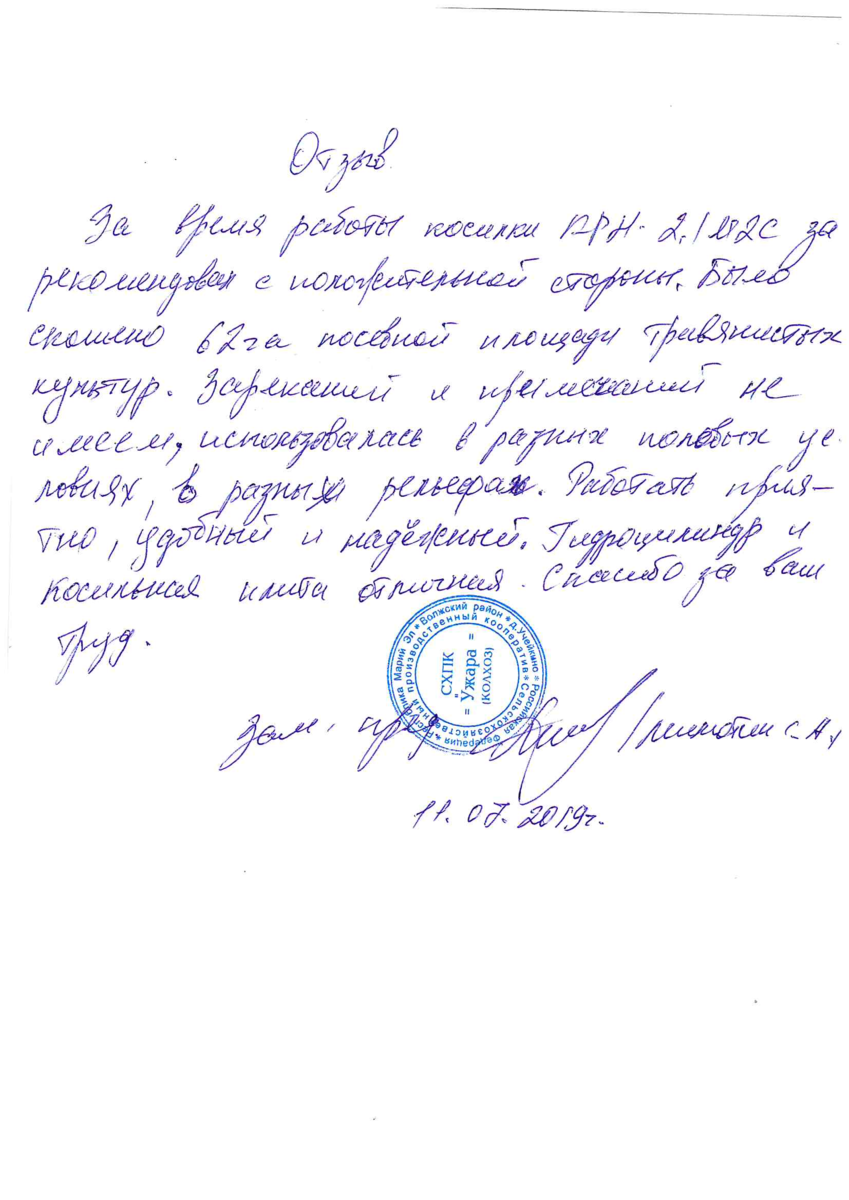 Отзыв
За время работы косилки АРН-2,1М2С за
рекомендовал с положительной стороны. Было
скошено 62 га посевной площади травянистых
культур. Зарекании и примечаний не
имеем, использовалась в разных половых ус
ловиях, в разных рельефах. Работать прия-
тно, удобный и надёжный. Гидроцилиндр и
косильная плита отличная. Спасибо за ваш
труд.
Республика Марий Эл * Волжский район * д. Учейкино * Российская Федерация *
Сельскохозяйственный производственный кооператив *
СХПК
"Ужара"
(КОЛХОЗ)
Зам.
С.А.
11.07.2019г.